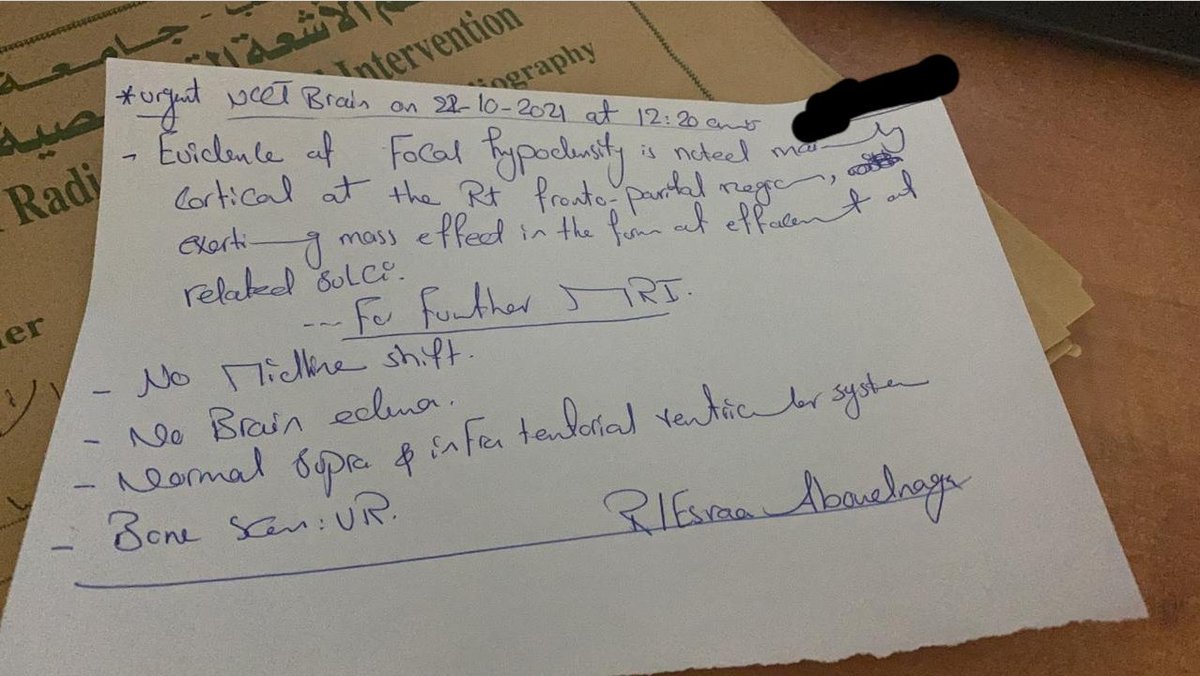 جامعة
Intervention
iography
Radi
er
*urgent NCCT Brain on 22-10-2021 at 12:20 am
- Evidence of Focal hypodensity is noted mainly
cortical at the Rt fronto-parital region,
exerting mass effect in the form of effacment of
related sulci.
--- For Further MRI.
- No Midline shift.
- No Brain edema.
- Normal supra & infra tentorial ventricular system
- Bone Scan: UR.
R/Esraa Abouelnaga